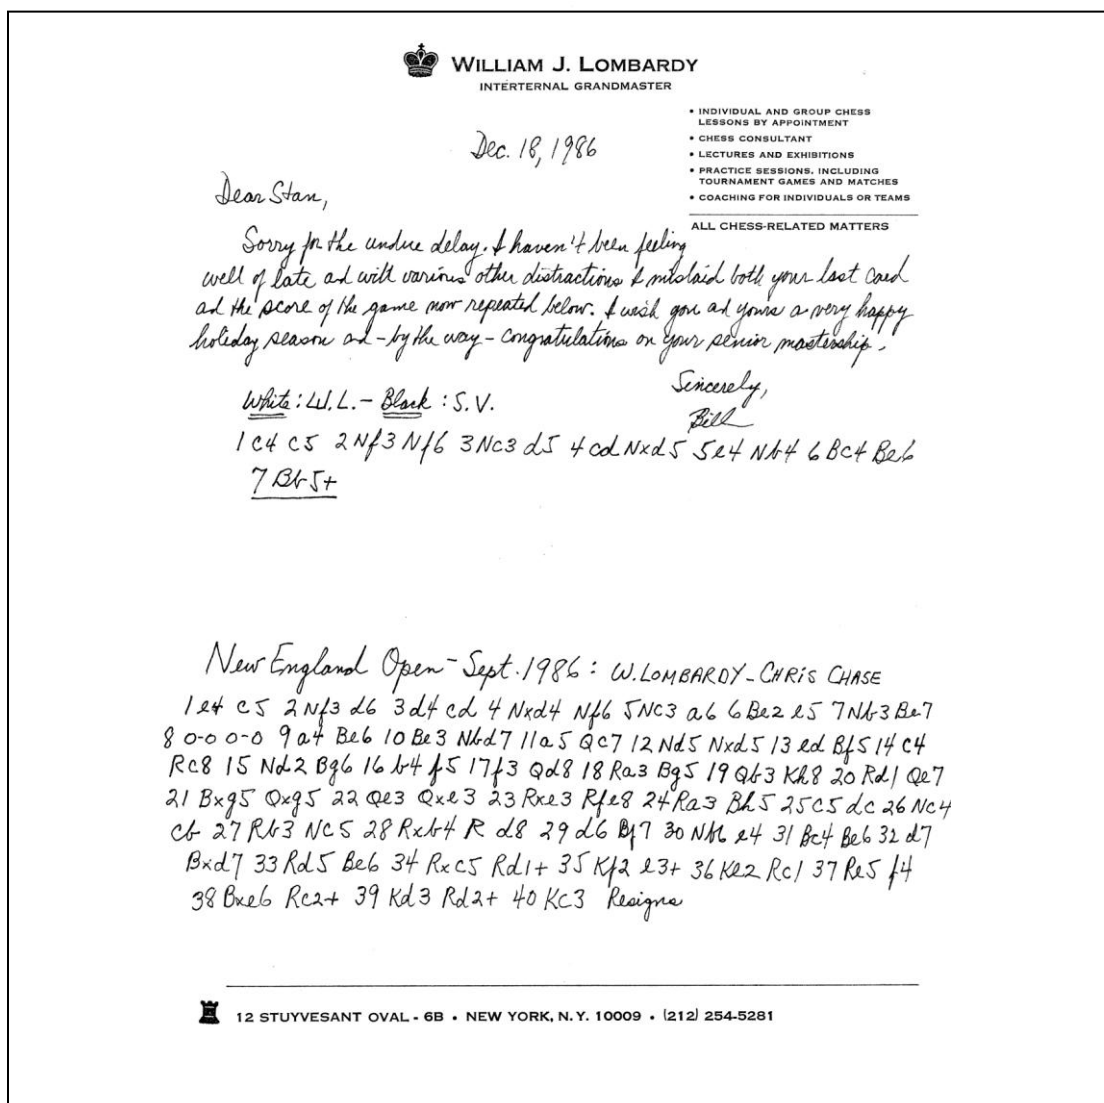 WILLIAM J. LOMBARDY
INTERTERNAL GRANDMASTER
• INDIVIDUAL AND GROUP CHESS
LESSONS BY APPOINTMENT
• CHESS CONSULTANT
• LECTURES AND EXHIBITIONS
• PRACTICE SESSIONS, INCLUDING
TOURNAMENT GAMES AND MATCHES
• COACHING FOR INDIVIDUALS OR TEAMS
ALL CHESS-RELATED MATTERS
Dec. 18, 1986
Dear Stan,
Sorry for the undue delay. I haven't been feeling
well of late ad with various other distractions I mislaid both your last card
ad the score of the game now repeated below. I wish you ad yours a very happy
holiday season ad - by the way - congratulations on your senior mastership.
Sincerely,
Bill
White: W.L. - Black: S.V.
1 c4 c5 2 Nf3 Nf6 3 Nc3 d5 4 cd Nxd5 5 e4 Nb4 6 Bc4 Be6
7 Bb5+
New England Open - Sept. 1986: W. LOMBARDY - CHRIS CHASE
1 e4 c5 2 Nf3 d6 3 d4 cd 4 Nxd4 Nf6 5 Nc3 a6 6 Be2 e5 7 Nb3 Be7
8 0-0 0-0 9 a4 Be6 10 Be3 Nbd7 11 a5 Qc7 12 Nd5 Nxd5 13 ed Bf5 14 c4
Rc8 15 Nd2 Bg6 16 b4 f5 17 f3 Qd8 18 Ra3 Bg5 19 Qb3 Kh8 20 Rd1 Qe7
21 Bxg5 Qxg5 22 Qe3 Qxe3 23 Rxe3 Rfe8 24 Ra3 Bh5 25 c5 dc 26 Nc4
cb 27 Rb3 Nc5 28 Rxb4 R d8 29 d6 Bf7 30 Nb6 e4 31 Bc4 Be6 32 d7
Bxd7 33 Rd5 Be6 34 Rxc5 Rd1+ 35 Kf2 e3+ 36 Ke2 Rc1 37 Re5 f4
38 Bxe6 Rc2+ 39 Kd3 Rd2+ 40 Kc3 Resigns
12 STUYVESANT OVAL - 6B • NEW YORK, N.Y. 10009 • (212) 254-5281